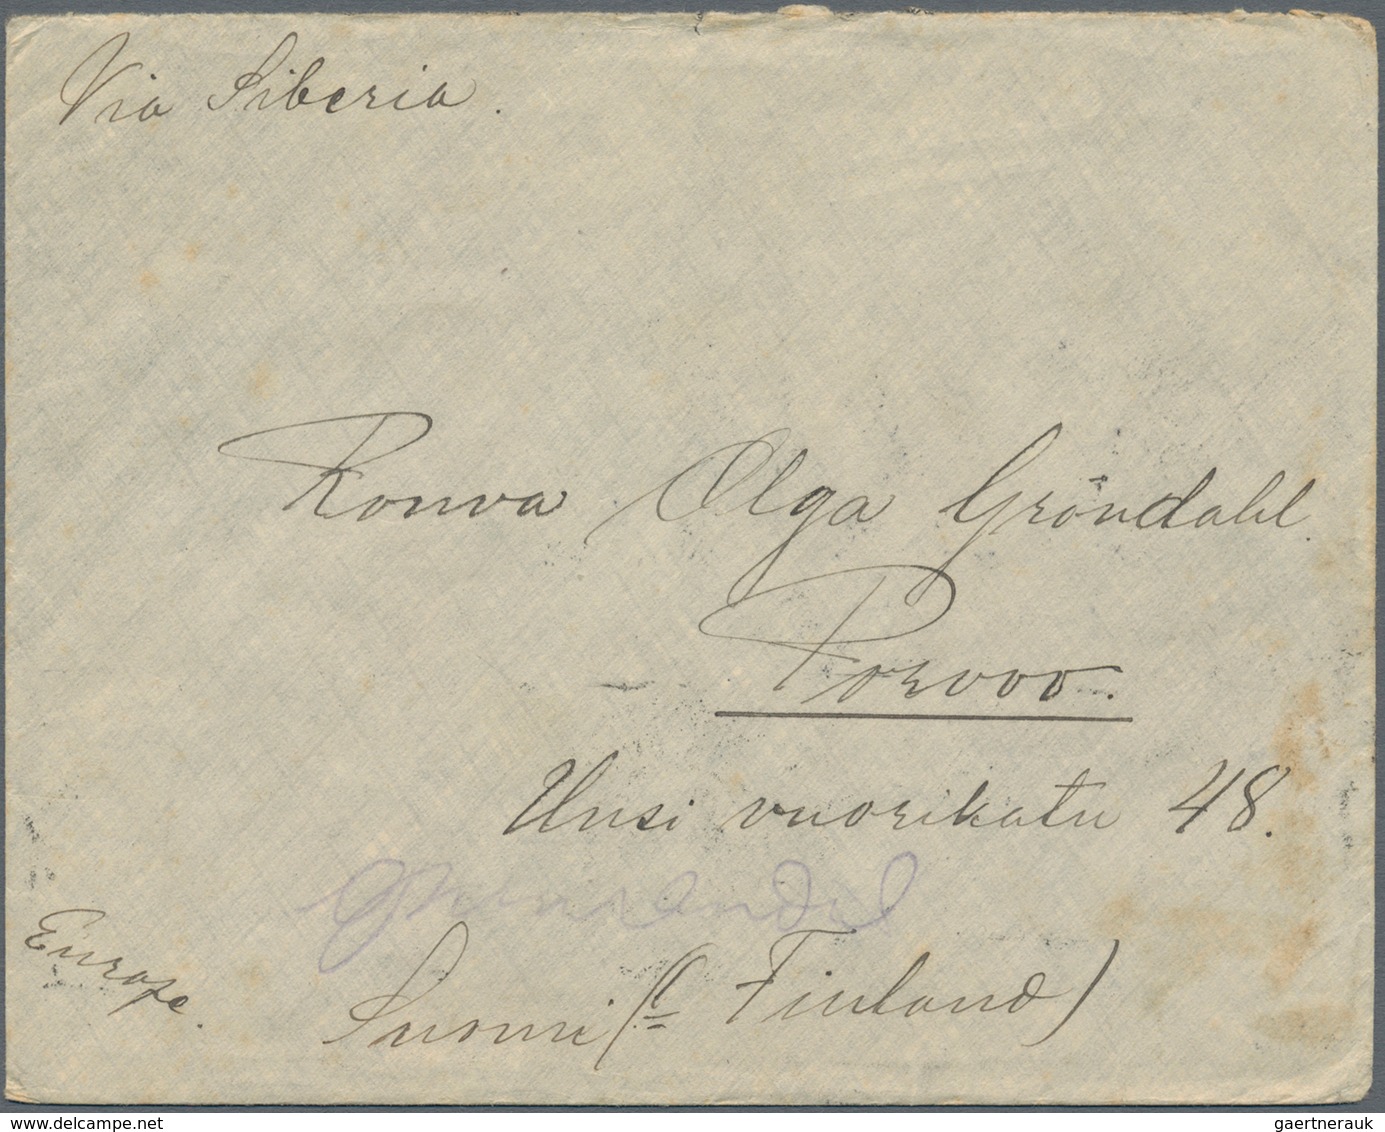 Via Siberia.
Rouva Olga Gröndahl.
Porvoo.
Uusi vuorikatu 48.
Europe.
Suomi (= Finland)
www.delcampe.net
gaertnerauk